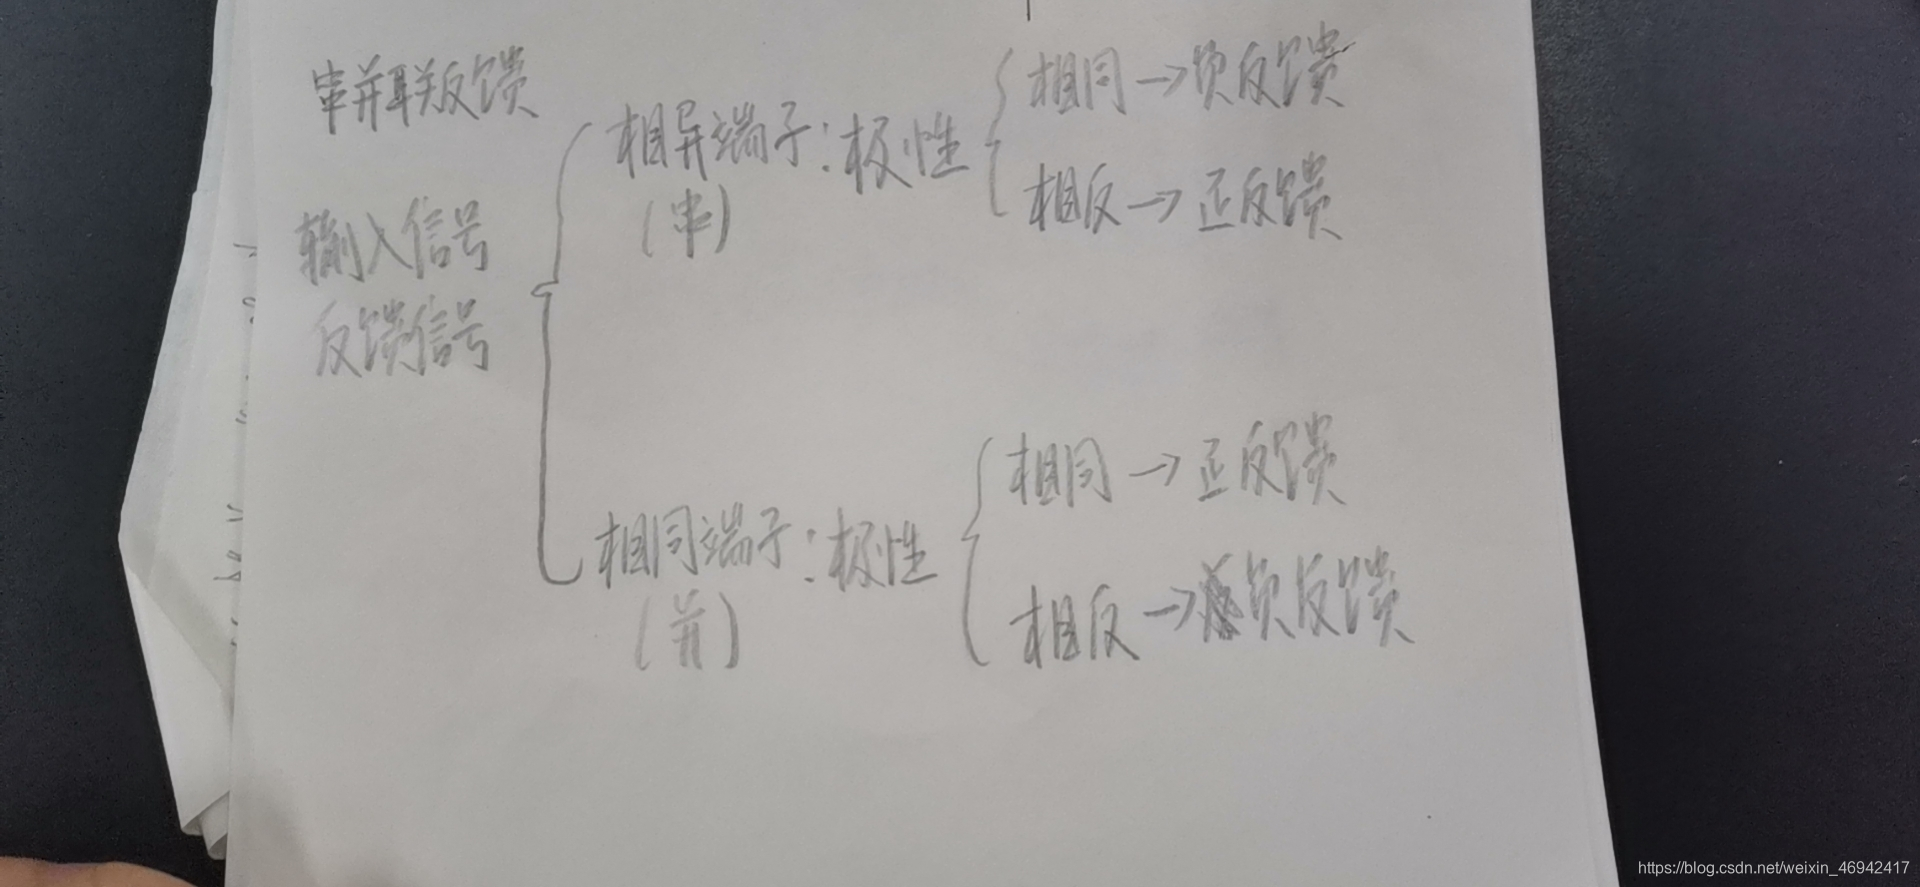 串并联反馈
输入信号
反馈信号
相异端子:极性
(串)
相同→负反馈
相反→正反馈
相同端子:极性
(并)
相同→正反馈
相反→负反馈
https://blog.csdn.net/weixin_46942417